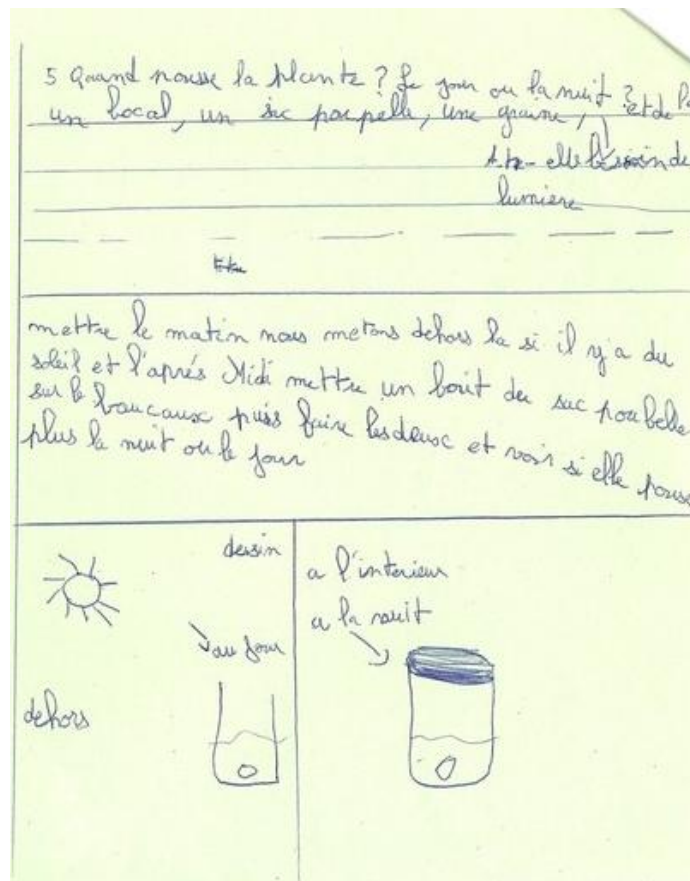 5 Quand pousse la plante ? Le jour ou la nuit ?
un bocal, un sac poupelle, une graine, et de l
A.t- elle besoin de
lumiere
mettre le matin nous metons dehors la si il y a du
soleil et l'aprés Midi mettre un bout du sac poubelle
sur le baucaux puis faire les deux et voir si elle pouss
plus la nuit ou le jour
dessin
au jour
dehors
a l'interieur
a la nuit